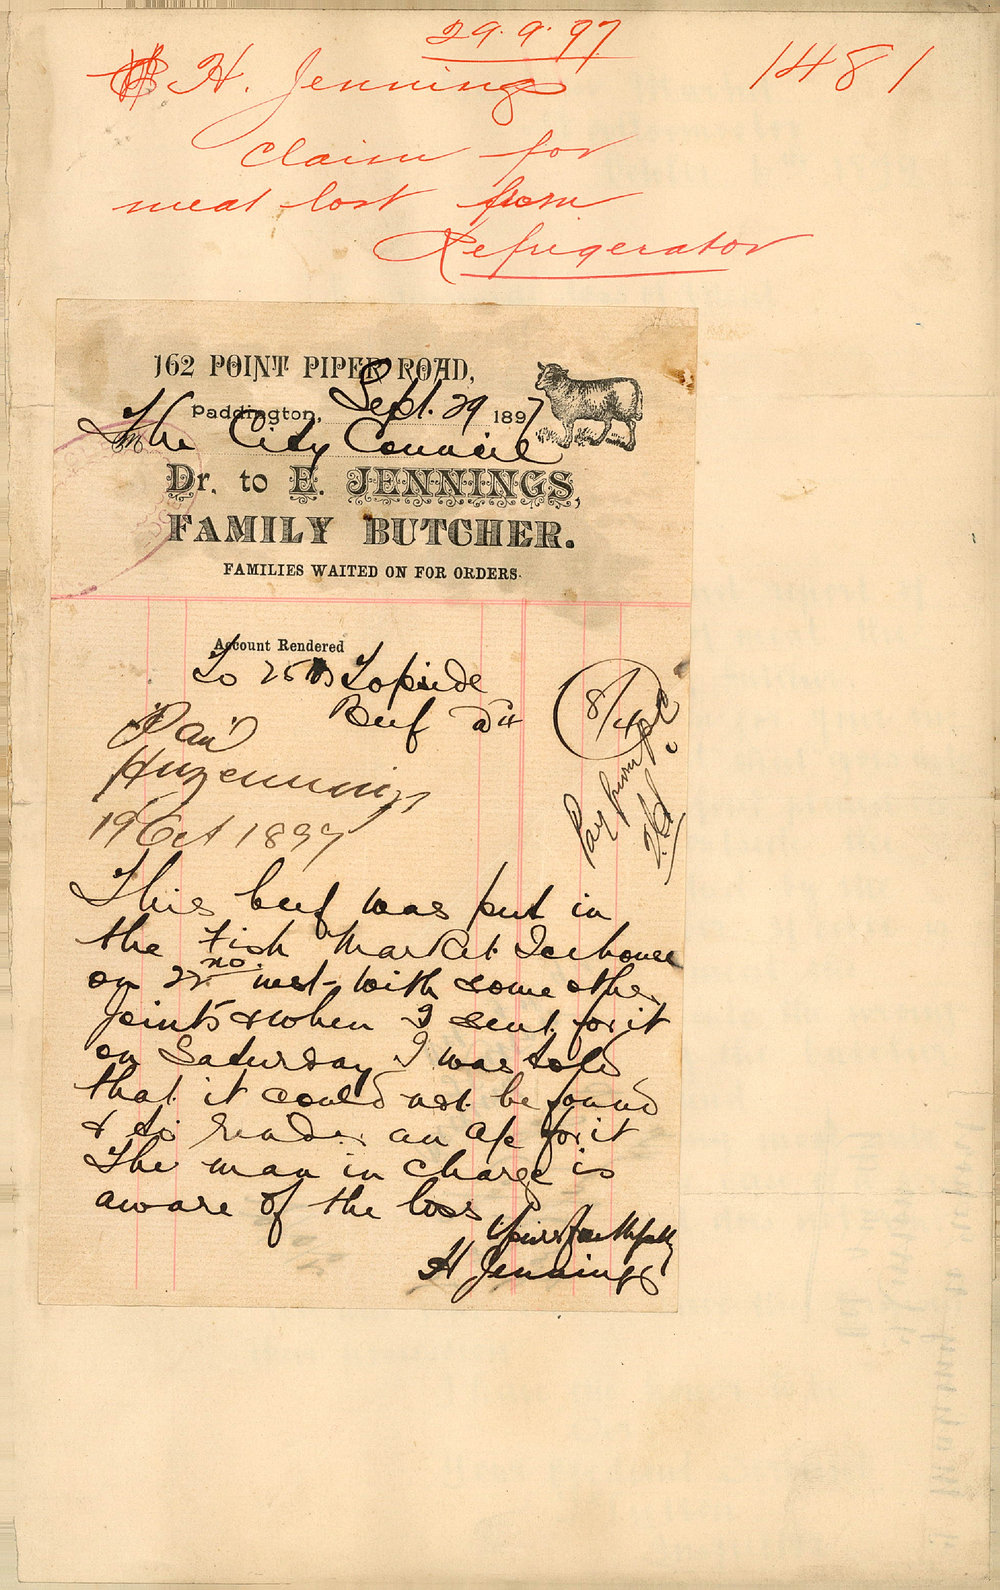 29.9.97
H. Jennings
1481
Claim for
meat lost from
Refrigerator
162 POINT PIPER ROAD,
Paddington, Sept. 29 1897
The City Council
Dr. to E. JENNINGS,
FAMILY BUTCHER.
FAMILIES WAITED ON FOR ORDERS.
Account Rendered
To 25 lbs Topside
Beef
8/4
Pay from P.C.
Paid
H Jennings
19 Oct 1897
This beef was put in
the Fish Market Icehouse
on 22nd inst with some other
joints & when I sent for it
on Saturday I was told
that it could not be found
& to render an a/c for it
The man in charge is
aware of the loss
Yours faithfully
H Jennings